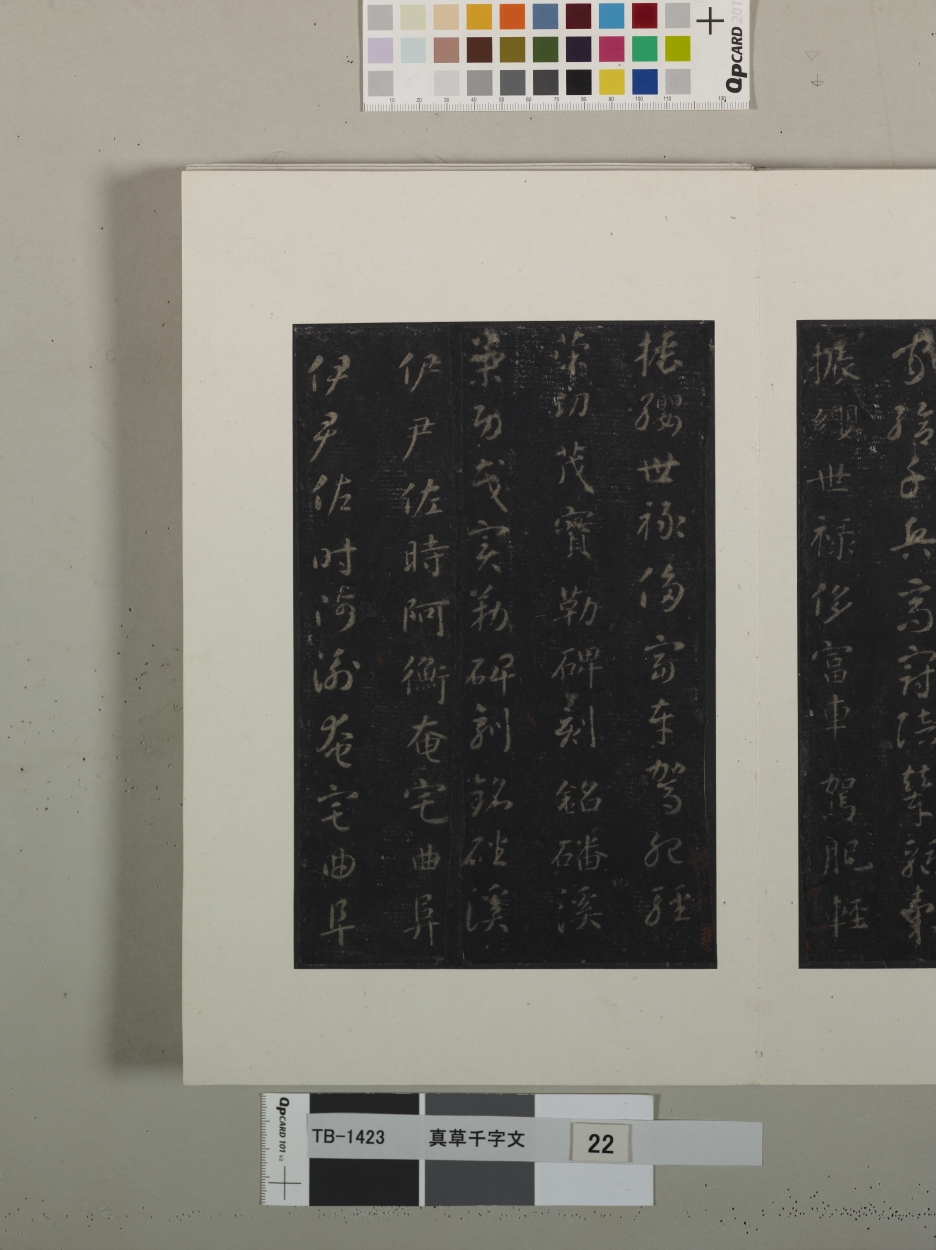 家給千兵高冠陪輦驅轂
振纓世禄侈富車駕肥輕
振纓世禄侈富車駕肥輕
策功茂實勒碑刻銘磻溪
策功茂實勒碑刻銘磻溪
伊尹佐時阿衡奄宅曲阜
伊尹佐時阿衡奄宅曲阜
QPCARD 201
10 20 30 40 50 60 70 80 90 100 110 130
QPCARD 101 v2
TB-1423 真草千字文 22